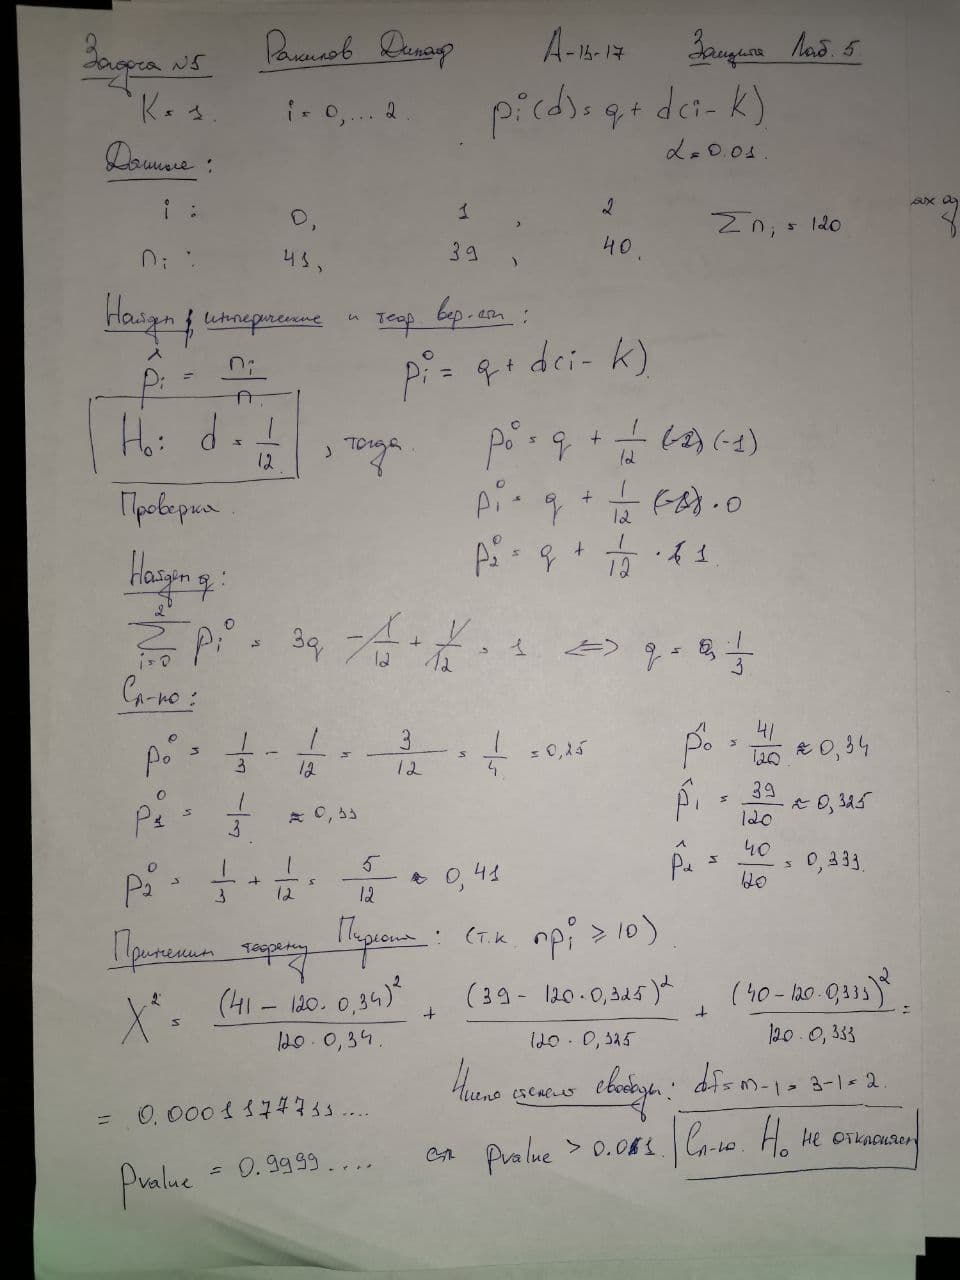 Задача №5 Рамилов Динар А-13-17 Защита Лаб. 5
K = 1. i = 0, ... 2. pi(d) = q + d(i - k)
Данные: α = 0.01.
i : 0, 1, 2 Σ ni = 120
ni : 41, 39, 40.
Найдем эмпирические и теор. вер-сти:
p̂i = ni/n pi⁰ = q + d(i - k)
H₀: d = 1/12, тогда p₀⁰ = q + 1/12 (-1)
Проверка. p₁⁰ = q + 1/12 · 0
p₂⁰ = q + 1/12 · 1
Найдем q:
Σ(i=0..2) pi⁰ = 3q - 1/12 + 1/12 = 1 <=> q = 1/3
Сл-но:
p₀⁰ = 1/3 - 1/12 = 3/12 = 1/4 = 0,25 p̂₀ = 41/120 ≈ 0,34
p₁⁰ = 1/3 ≈ 0,33 p̂₁ = 39/120 ≈ 0,325
p₂⁰ = 1/3 + 1/12 = 5/12 ≈ 0,41 p̂₂ = 40/120 = 0,333
Применим теорему Пирсона: (т.к. npi⁰ ≥ 10)
X² = (41 - 120 · 0,34)²/(120 · 0,34) + (39 - 120 · 0,325)²/(120 · 0,325) + (40 - 120 · 0,333)²/(120 · 0,333) =
Число степеней свободы: df = m - 1 = 3 - 1 = 2.
= 0.0001177711....
Pvalue = 0.9999.... Pvalue > 0.01 Сл-но. H₀ не отклоняем